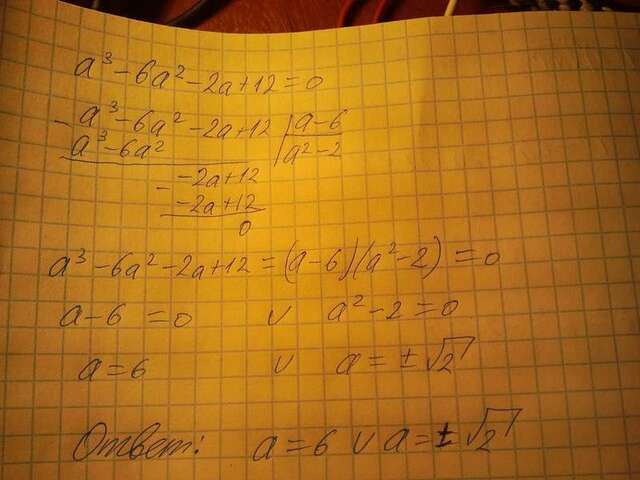 a³ - 6a² - 2a + 12 = 0
- a³ - 6a² - 2a + 12 | a - 6
a³ - 6a² | a² - 2
- -2a + 12
-2a + 12
0
a³ - 6a² - 2a + 12 = (a - 6)(a² - 2) = 0
a - 6 = 0 ∨ a² - 2 = 0
a = 6 ∨ a = ±√2
Ответ: a = 6 ∨ a = ±√2